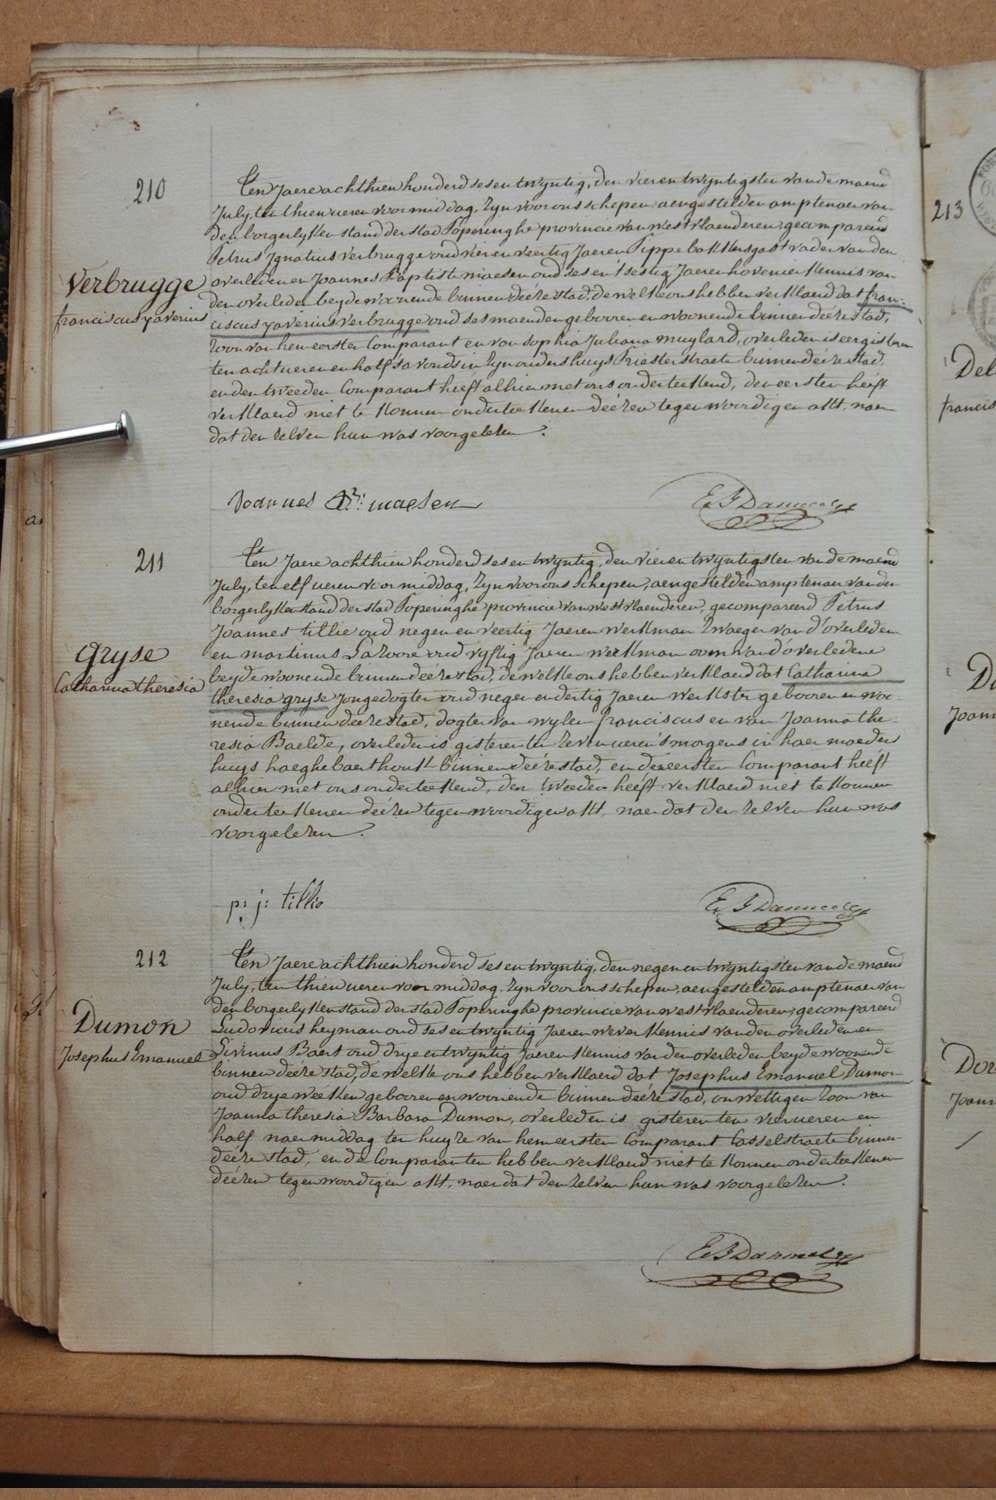 210
Ten Jaere achthien honderd ses en twyntig, den vier en twyntigsten van de maend
July, ten thien ueren voormiddag, zyn voor ons schepen, aengestelden amptenaer van
den borgerlyken stand der stad Poperinghe provincie van westvlaenderen, gecompareerd
Petrus Ignatius Verbrugge oud vier en veertig Jaeren Pippe bakkersgast vader van den
Verbrugge
franciscus xaverius
overleden en Joannes Baptiste maesen oud ses en sestig Jaeren hovenier kennis van
den overleden beyde woonende binnen deéze stad, de welke ons hebben verklaerd dat fran-
ciscus xaverius verbrugge oud ses maenden gebooren en woonende binnen deéze stad,
Zoon van hen eersten Comparant en van Sophia Juliana muylard, overleden is eergisteren
ten acht ueren en half s'avonds in zyn ouders huys Priesterstraete binnen deéze stad
en den tweeden Comparant heéft alhier met ons onderteekend, den eersten heéft
verklaerd niet te konnen onderteekenen deézen tegenwoordigen akt, naer
dat den zelven hun was voorgelezen.
Joannes Bte: maesen
211
Ten Jaere achthien honderd ses en twyntig, den vier en twyntigsten van de maend
July, ten elf ueren voormiddag, zyn voor ons schepen, aengestelden amptenaer van den
borgerlyken stand der stad Poperinghe provincie van westvlaenderen, gecompareerd Petrus
Joannes tillie oud negen en veertig Jaeren werkman Zwaeger van d'overleden
Gryse
Catharina theresia
en martinus Lazoore oud vyftig Jaeren werkman oom van d'overledene
beyde woonende binnen deéze stad, de welke ons hebben verklaerd dat Catharina
theresia gryse Jongedogter oud negen en dertig Jaeren werkster gebooren en woo-
nende binnen deéze stad, dogter van wylen franciscus en van Joanna the-
resia Baelde, overleden is gisteren ten zeven ueren s'morgens in haer moeder
huys haeghebaerthoek binnen deéze stad, en den eersten Comparant heéft
alhier met ons onderteekend, den tweeden heéft verklaerd niet te konnen
onderteekenen deézen tegenwoordigen akt, naer dat den zelven hun was
voorgelezen.
p: j: tillie
212
Ten Jaere achthien honderd ses en twyntig, den negen en twyntigsten van de maend
July, ten thien ueren voormiddag, zyn voor ons schepen, aengestelden amptenaer van
den borgerlyken stand der stad Poperinghe provincie van westvlaenderen, gecompareerd
Dumon
Josephus Emanuel
Ludovicus heyman oud ses en twyntig Jaeren wever kennis van den overledenen
Livinus Baert oud drye en twyntig Jaeren kennis van den overleden beyde woonende
binnen deéze stad, de welke ons hebben verklaerd dat Josephus Emanuel Dumon
oud drye weéken gebooren en woonende binnen deéze stad, onwettigen zoon van
Joanna theresia Barbara Dumon, overleden is gisteren ten vier ueren en
half naermiddag ten huyze van hen eersten Comparant Casselstraete binnen
deéze stad, en de Comparanten hebben verklaerd niet te konnen onderteekenen
deézen tegenwoordigen akt, naer dat den zelven hun was voorgelezen.
213
Del
francis
Du
Joann
Dor
Joann